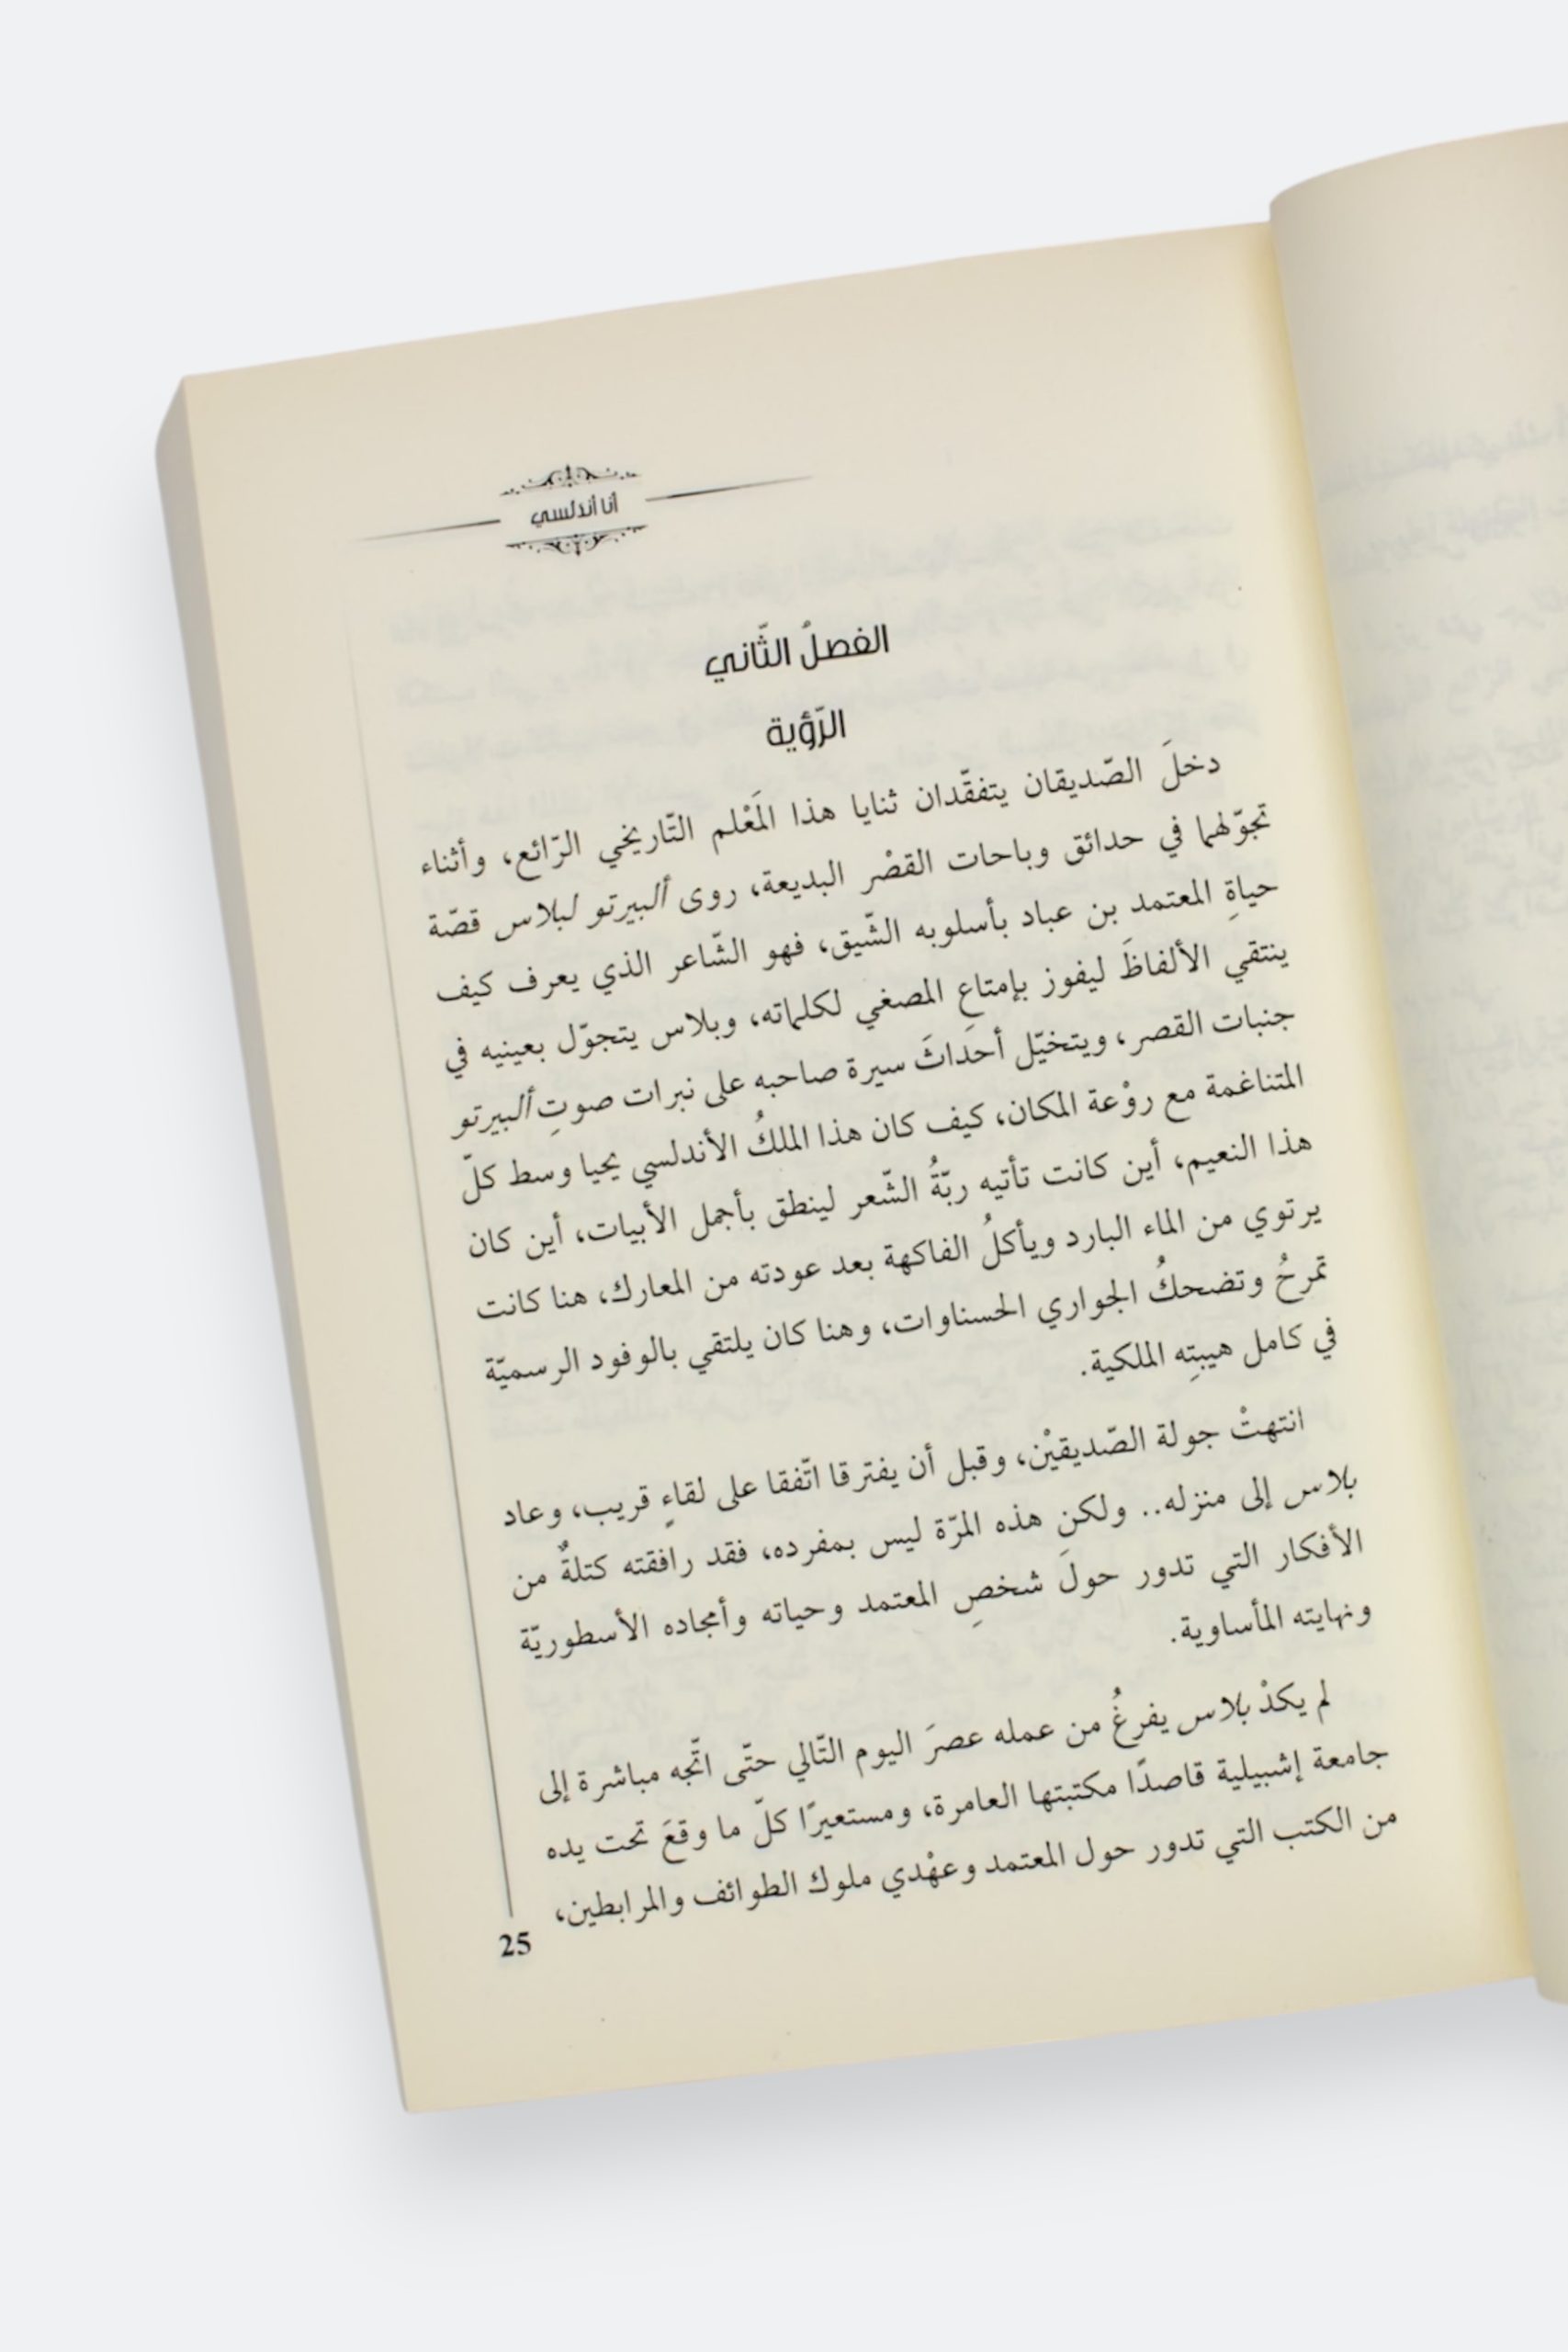 أنا أندلسي
الفصلُ الثّاني
الرّؤية
دخلَ الصّديقان يتفقّدان ثنايا هذا المَعْلم التّاريخي الرّائع، وأثناء
تجوّلهما في حدائق وباحات القصْر البديعة، روى ألبيرتو لبلاس قصّة
حياةِ المعتمد بن عباد بأسلوبه الشّيق، فهو الشّاعر الذي يعرف كيف
ينتقي الألفاظَ ليفوز بإمتاعِ المصغي لكلماته، وبلاس يتجوّل بعينيه في
جنبات القصر، ويتخيّل أحداثَ سيرة صاحبه على نبرات صوتِ ألبيرتو
المتناغمة مع روْعة المكان، كيف كان هذا الملكُ الأندلسي يحيا وسط كلّ
هذا النعيم، أين كانت تأتيه ربّةُ الشّعر لينطق بأجمل الأبيات، أين كان
يرتوي من الماء البارد ويأكلُ الفاكهة بعد عودته من المعارك، هنا كانت
تمرحُ وتضحكُ الجواري الحسناوات، وهنا كان يلتقي بالوفود الرسميّة
في كامل هيبتِه الملكية.
انتهتْ جولة الصّديقيْن، وقبل أن يفترقا اتّفقا على لقاءٍ قريب، وعاد
بلاس إلى منزله.. ولكنِ هذه المرّة ليس بمفرده، فقد رافقته كتلةٌ من
الأفكار التي تدور حولَ شخصِ المعتمد وحياته وأمجاده الأسطوريّة
ونهايته المأساوية.
لم يكدْ بلاس يفرغُ من عمله عصرَ اليوم التّالي حتّى اتّجه مباشرة إلى
جامعة إشبيلية قاصدًا مكتبتها العامرة، ومستعيرًا كلّ ما وقعَ تحت يده
من الكتب التي تدور حول المعتمد وعهْدي ملوك الطوائف والمرابطين،
25